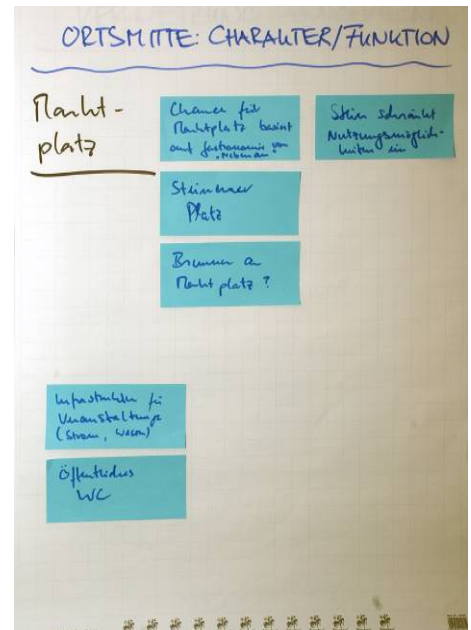 ORTSMITTE: CHARAKTER/FUNKTION
Markt-
platz
Chance für
Marktplatz basiert
auf Gastronomie von
Stein schränkt
Nutzungsmöglich-
keiten ein
Steinerner
Platz
Brunnen am
Marktplatz?
Infrastruktur für
Veranstaltungen
(Strom, Wasser)
Öffentliches
WC